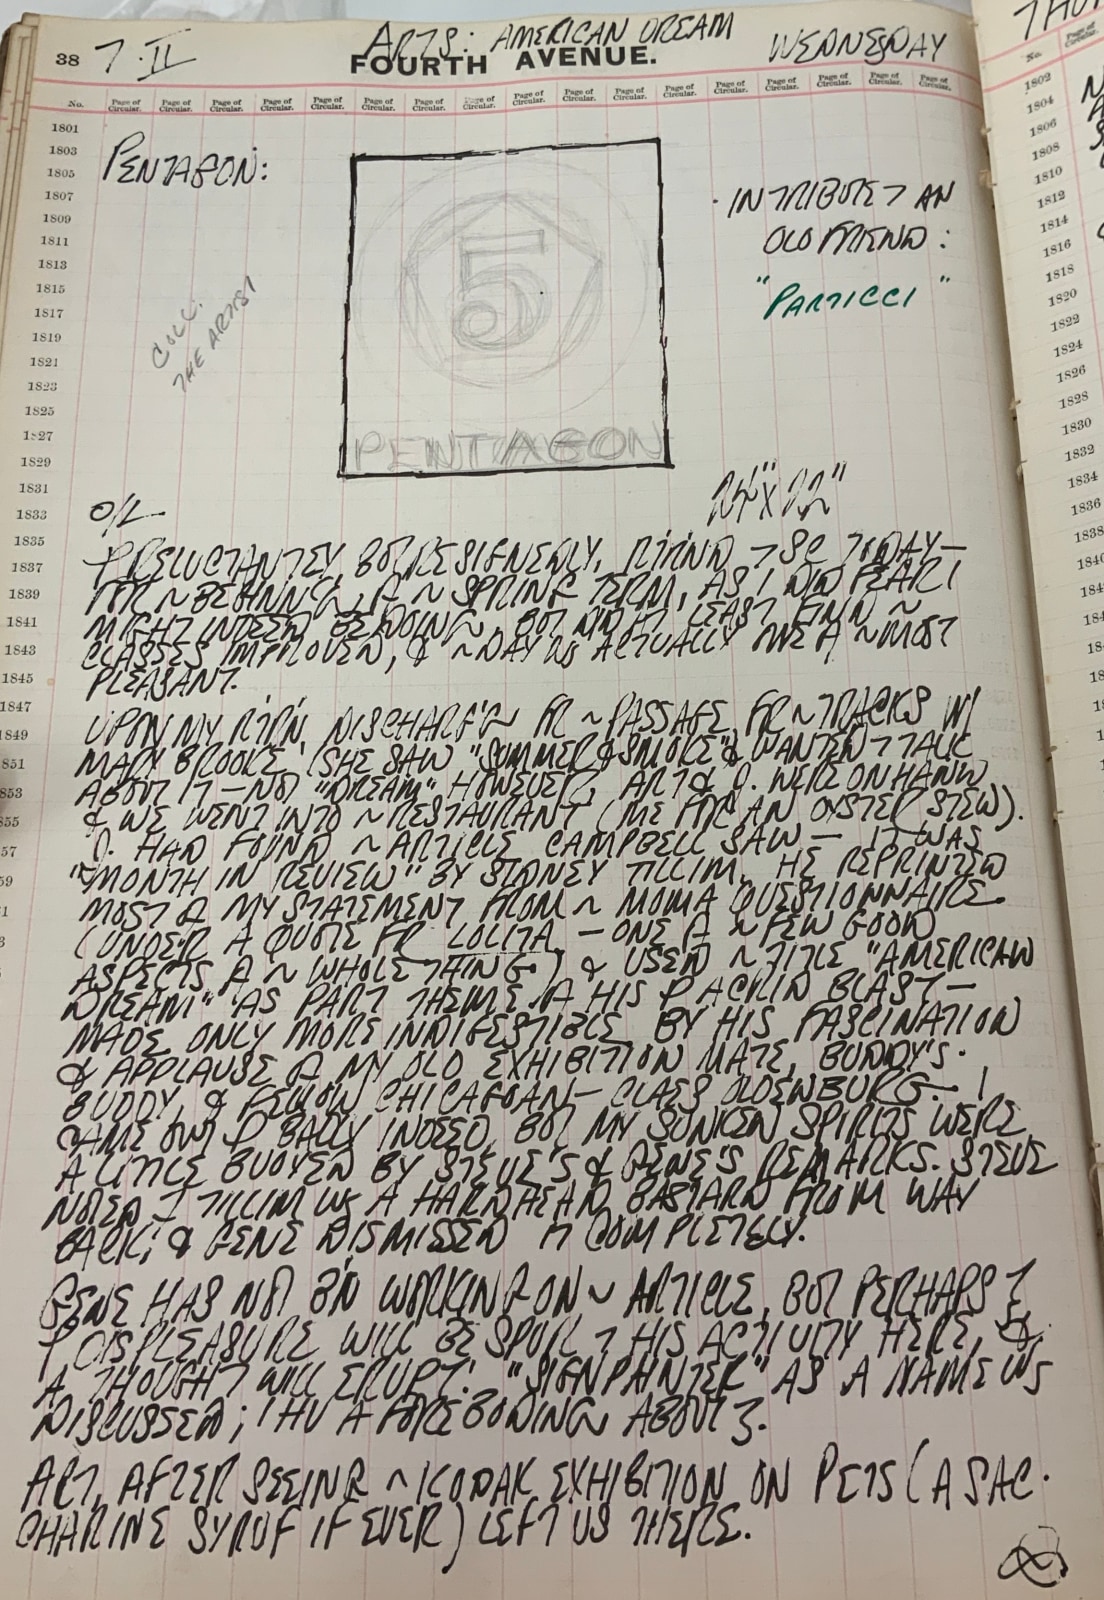 ARTS: AMERICAN DREAM
38 7·II FOURTH AVENUE. WEDNESDAY
No. Page of Circular. Page of Circular. Page of Circular. Page of Circular. Page of Circular. Page of Circular. Page of Circular. Page of Circular. Page of Circular. Page of Circular. Page of Circular. Page of Circular. Page of Circular. Page of Circular. Page of Circular. Page of Circular. Page of Circular.
1801
1803
1805
1807
1809
1811
1813
1815
1817
1819
1821
1823
1825
1827
1829
1831
1833
1835
1837
1839
1841
1843
1845
1847
1849
851
853
855
57
59
PENTAGON:
5
PENTAGON
COLL:
THE ARTIST
· IN TRIBUTE 7 AN
OLD FRIEND:
"PARTICCI"
O/L 24" X 22"
RELUCTANTLY, BUT RESIGNEDLY, 7 SC TODAY—
FR ~ BEGINNING ~ SPRING TERM, AS I DID FEAR I
MIGHT INDEED BE DOING ~ BUT DID AT LEAST FIND ~
CLASSES IMPROVED, & ~ DAY WS ACTUALLY ~ MOST
PLEASANT.
UPON MY RTRN, DISCHARG'G ~ FR ~ PASSAGE FR ~ TRACKS W/
MARY BROOKE, (SHE SAW "SUMMER & SMOKE" & WANTED 7 TALK
ABOUT IT — NOT "DREAM" HOWEVER), ART & D. WERE ON HAND
& WE WENT INTO ~ RESTAURANT (ME FOR AN OYSTER STEW).
D. HAD FOUND ~ ARTICLE CAMPBELL SAW — IT WAS
"MONTH IN REVIEW" BY SIDNEY TILLIM. HE REPRINTED
MOST A MY STATEMENT FROM ~ MOMA QUESTIONNAIRE.
(UNDER A QUOTE FR LOLITA — ONE A ~ FEW GOOD
ASPECTS A ~ WHOLE THING) & USED ~ TITLE "AMERICAN
DREAM" AS PART THEME A HIS BLAST —
MADE ONLY MORE INDIGESTIBLE BY HIS FASCINATION
& APPLAUSE A MY OLD EXHIBITION MATE, BUDDY'S
BUDDY, & FELLOW CHICAGOAN — CLAES OLDENBURG. — I
CAME OUT BADLY INDEED, BUT MY SUNKEN SPIRITS WERE
A LITTLE BUOYED BY STEVE'S & GENE'S REMARKS. STEVE
NOTED TILLIM WS A HARDHEAD BASTARD FROM WAY
BACK; & GENE DISMISSED IT COMPLETELY.
GENE HAS NOT BN WORKING ON ~ ARTICLE, BUT PERHAPS
DISPLEASURE WILL BE SPUR 7 HIS ACTIVITY HERE, &
A THOUGHT WILL ERUPT! "SIGN PAINTER" AS A NAME WS
DISCUSSED; I HV A FOREBODING ABOUT
ART, AFTER SEEING ~ KODAK EXHIBITION ON PETS (A SAC-
CHARINE SYRUP IF EVER) LEFT US THERE.
THU
No. Page of Circular.
1802
1804
1806
1808
1810
1812
1814
1816
1818
1820
1822
1824
1826
1828
1830
1832
1834
1836
1838